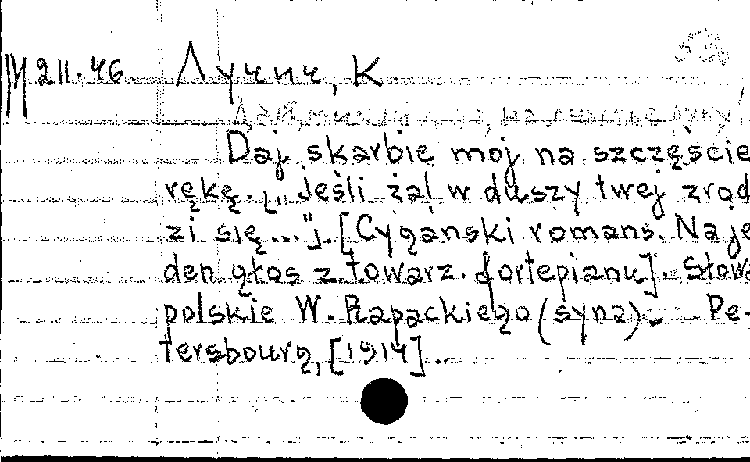 М 211.46 Лучич, К
Дай, милый
Daj skarbie moj na szczęście
rękę. [„Jeśli żal w duszy twej zrod
zi się..."]. [Cyganski romans. Na je
den głos z towarz. fortepianu]. Słowa
polskie W. Rapackiego (syna). Pe-
tersbourg, [1914].